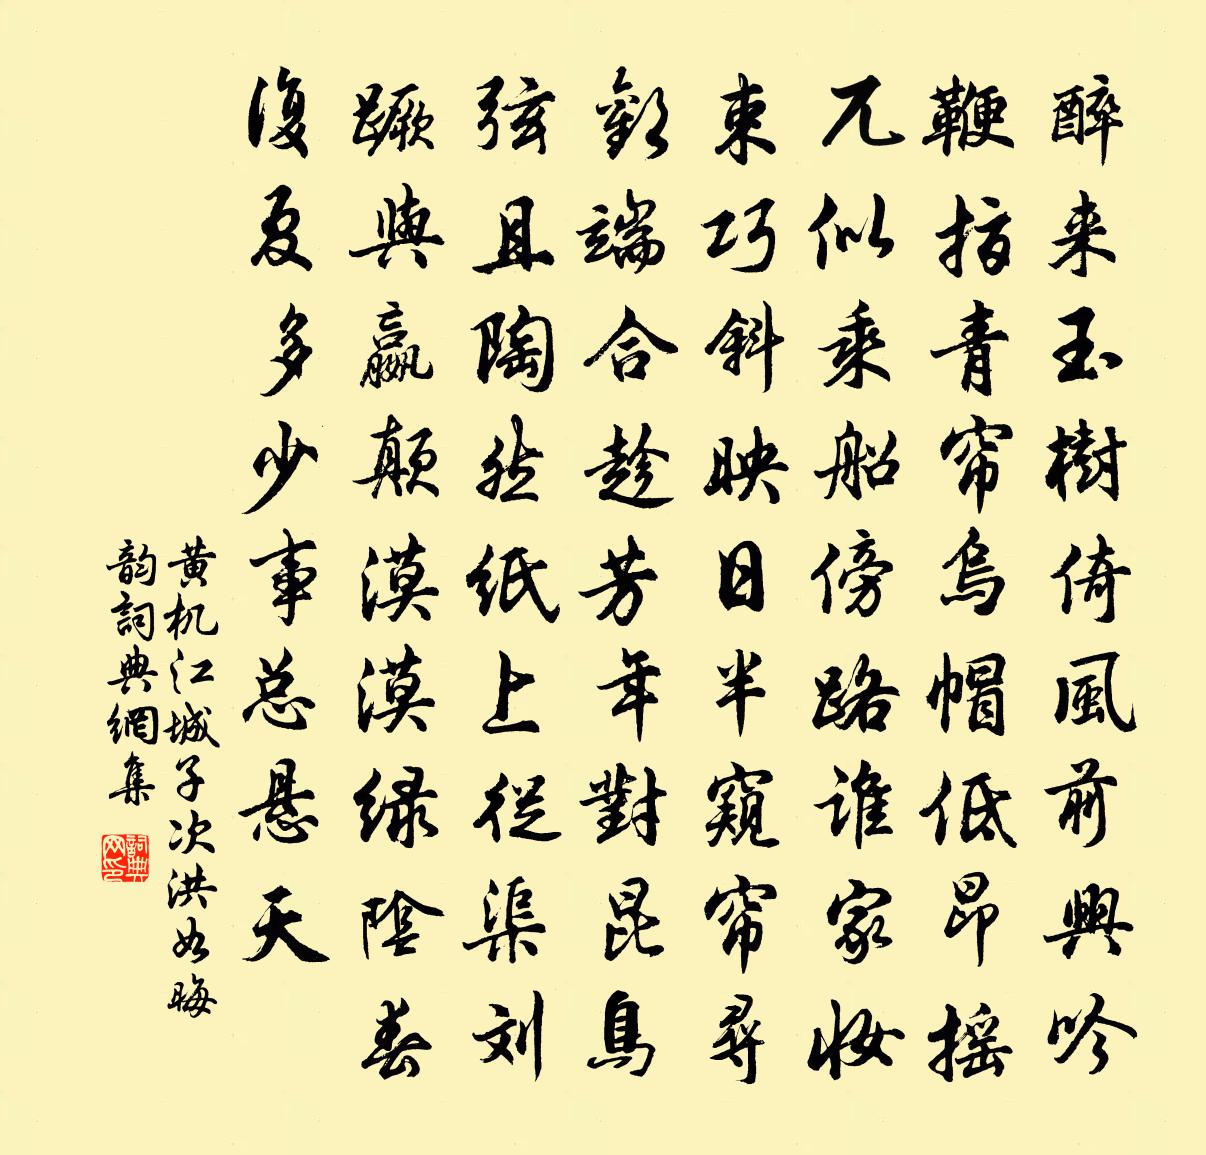 醉来玉樹倚風前興吟
鞭指青帘烏帽低昂摇
兀似乘船傍路谁家妆
束巧斜映日半窺帘尋
歡端合趁芳年對昆鳥
弦且陶然纸上從渠刘
蹶與嬴颠漠漠緑陰春
復夏多少事总悬天
黄机江城子次洪如晦
韵詞典網集
詞典网印